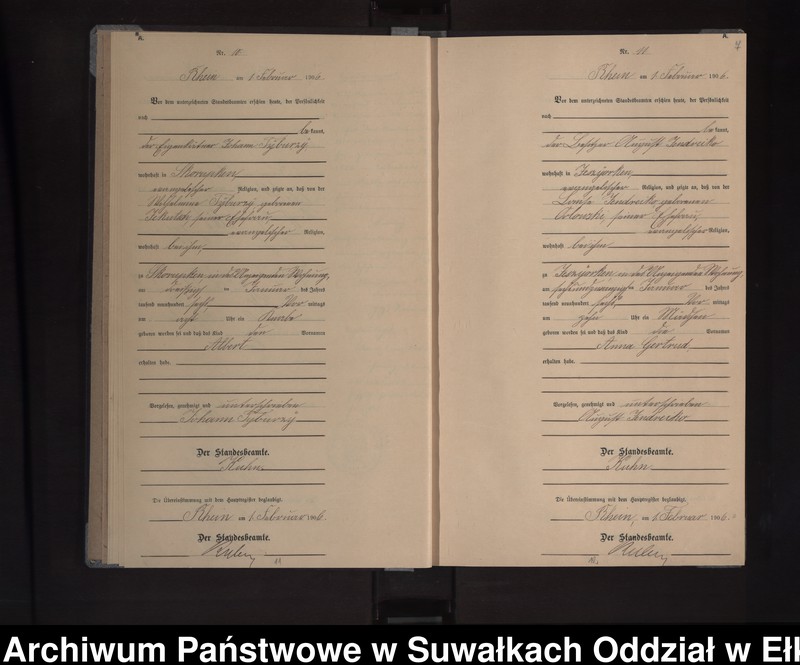 A.
Nr. 10
Rhein am 1 Februar 1906.
Vor dem unterzeichneten Standesbeamten erschien heute, der Persönlichkeit
nach
be kannt,
der Eigenkätner Johann Tyburzy
wohnhaft in Skomatzken
evangelischer Religion, und zeigte an, daß von der
Wilhelmine Tyburzy geborenen
seiner Ehefrau,
evangelischer Religion,
wohnhaft bei ihm,
in seiner Wohnung,
am dreißig ten Januar des Jahres
tausend neunhundert sechs, Vor mittags
um acht Uhr ein Knabe
geboren worden sei und daß das Kind den Vornamen
Albert
erhalten habe.
Vorgelesen, genehmigt und unterschrieben
Johann Tyburzy
Der Standesbeamte.
Kuhn.
Die Übereinstimmung mit dem Hauptregister beglaubigt.
Rhein am 1 Februar 1906.
Der Standesbeamte.
A.
7
Nr. 11
Rhein am 1 Februar 1906.
Vor dem unterzeichneten Standesbeamten erschien heute, der Persönlichkeit
nach
be kannt,
der Besitzer August Jendreiko
wohnhaft in Jesziorken
evangelischer Religion, und zeigte an, daß von der
Louise Jendreiko geborenen
Orlowski seiner Ehefrau,
evangelischer Religion,
wohnhaft bei ihm
zu Jesziorken, in des Anzeigenden Wohnung,
am sechsundzwanzig ten Januar des Jahres
tausend neunhundert sechs, Vor mittags
um zehn Uhr ein Mädchen
geboren worden sei und daß das Kind die Vornamen
Anna Gertrud,
erhalten habe.
Vorgelesen, genehmigt und unterschrieben
August Jendreiko
Der Standesbeamte.
Kuhn
Die Übereinstimmung mit dem Hauptregister beglaubigt.
Rhein, am 1 Februar 1906.
Der Standesbeamte.
Archiwum Państwowe w Suwałkach Oddział w Ełk